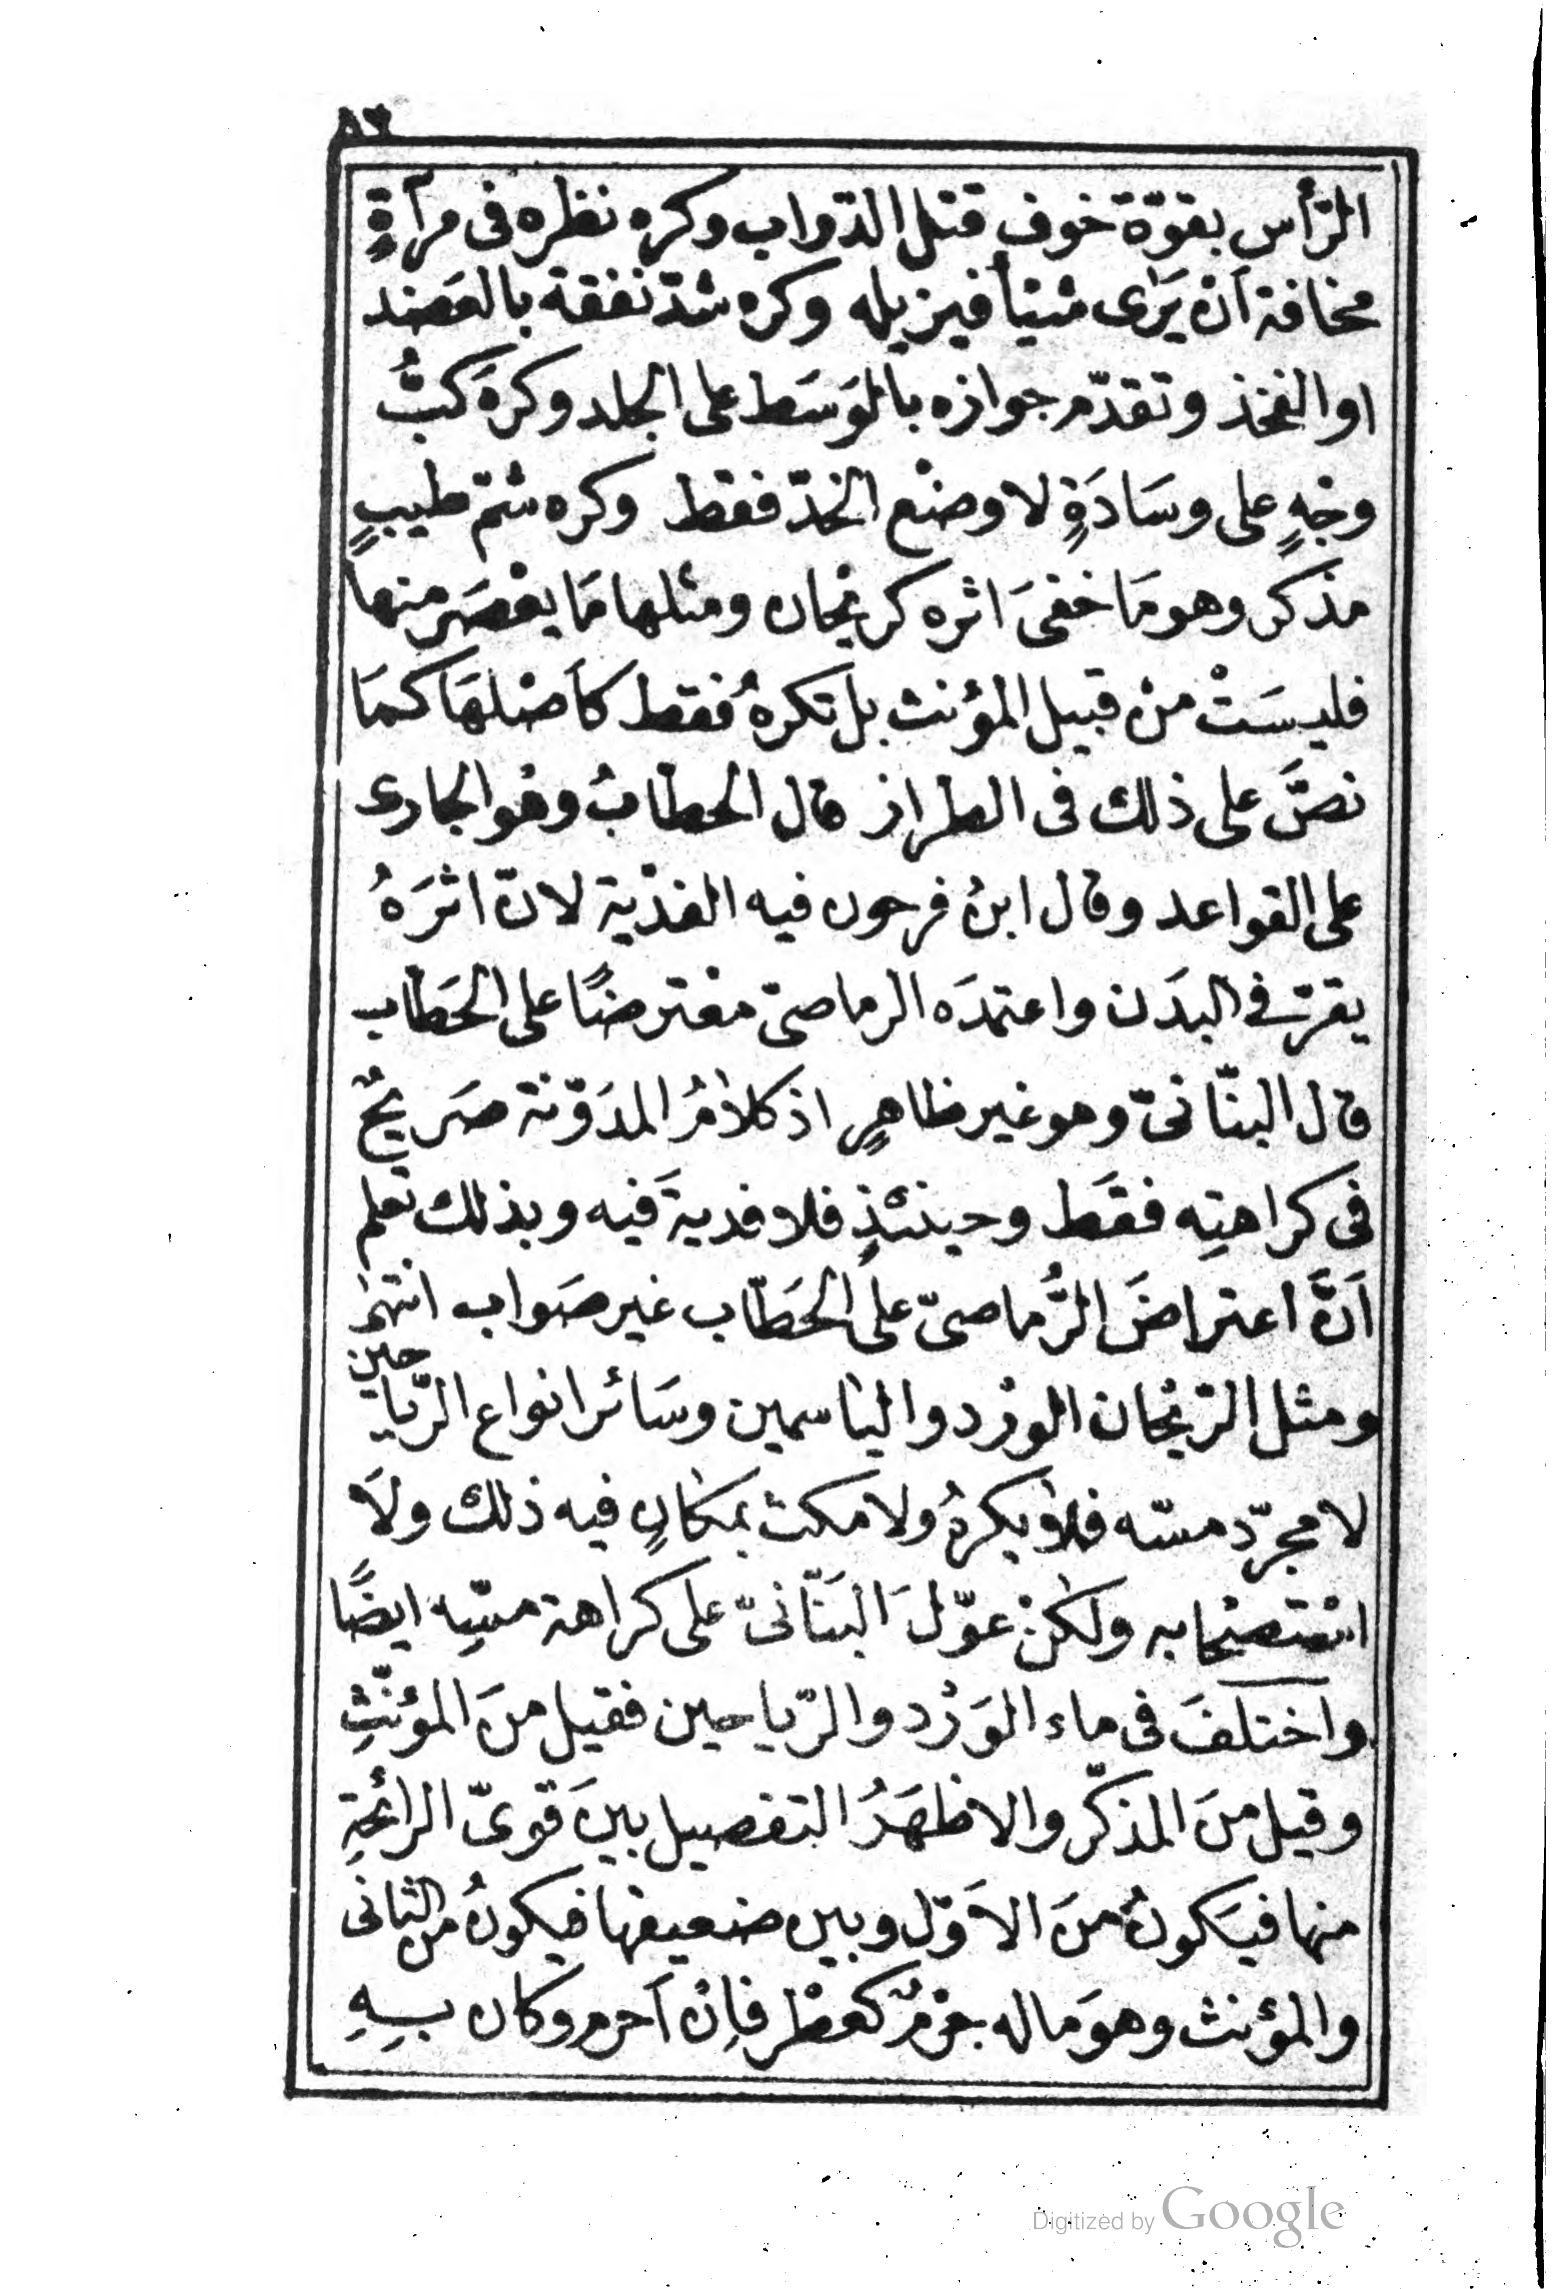 ٨٣
الرّأس بقوّة خوف قتل الدّواب وكره نظره فى مرآةٍ
مخافة اَن يَرٰى شيأ فيزيله وكره شدّ نفقة بالعَضد
او الفخذ وتقدّم جوازه بالوَسَط على الجلد وكرهَ كَبُّ
وجْهٍ على وسَادَةٍ لا وضْع الخدّ فقط وكره شمّ طيبٍ
مذكر وهو مَا خفىَ اثره كريْحان ومثلها مَا يعْصَر منها
فليسَتْ منْ قبيل المؤنث بل تكرهُ فقط كاَصْلهَا كمَا
نصَّ على ذلك فى الطراز قال الحطّابُ وهُو الجارى
على القواعد وقال ابنُ فرحون فيه الفدْية لانّ اثرَهُ
يقرّ فى البدَن واعتمدَه الرماصىّ معْترضًا على الحَطّاب
قال البنّانىّ وهو غير ظاهرٍ اذ كلاٰمُ المدَوّنة صَريحٌ
فى كراهتِه فقَط وحينئذٍ فلا فديةَ فيه وبذلك تعلم
اَنَّ اعتراضَ الرُّماصىّ على الحَطّاب غير صَواب انتهىٰ
ومثل الرّيْحان الورْد والياسمين وسَائر انواع الرّياحين
لا مجرّد مسّه فلاٰ يكرهُ ولا مكث بمكانٍ فيه ذلك ولاَ
اسْتصْحابه ولكنْ عوّلَ البَنّانىّ على كراهة مسّهِ ايضًا
واختلفَ فى ماء الوَرْد والرّياحين فقيل منَ المؤنّثِ
وقيل منَ المذكّر والاظهَرُ التفصيل بينَ قوىّ الرائحةِ
منها فيَكونُ منَ الاَوّل وبين ضعيفها فيكونُ من الثانى
والمؤنث وهوَ ماله جرْمٌ كعطْر فاِنْ اَحرم وكان بِهِ
Digitized by Google